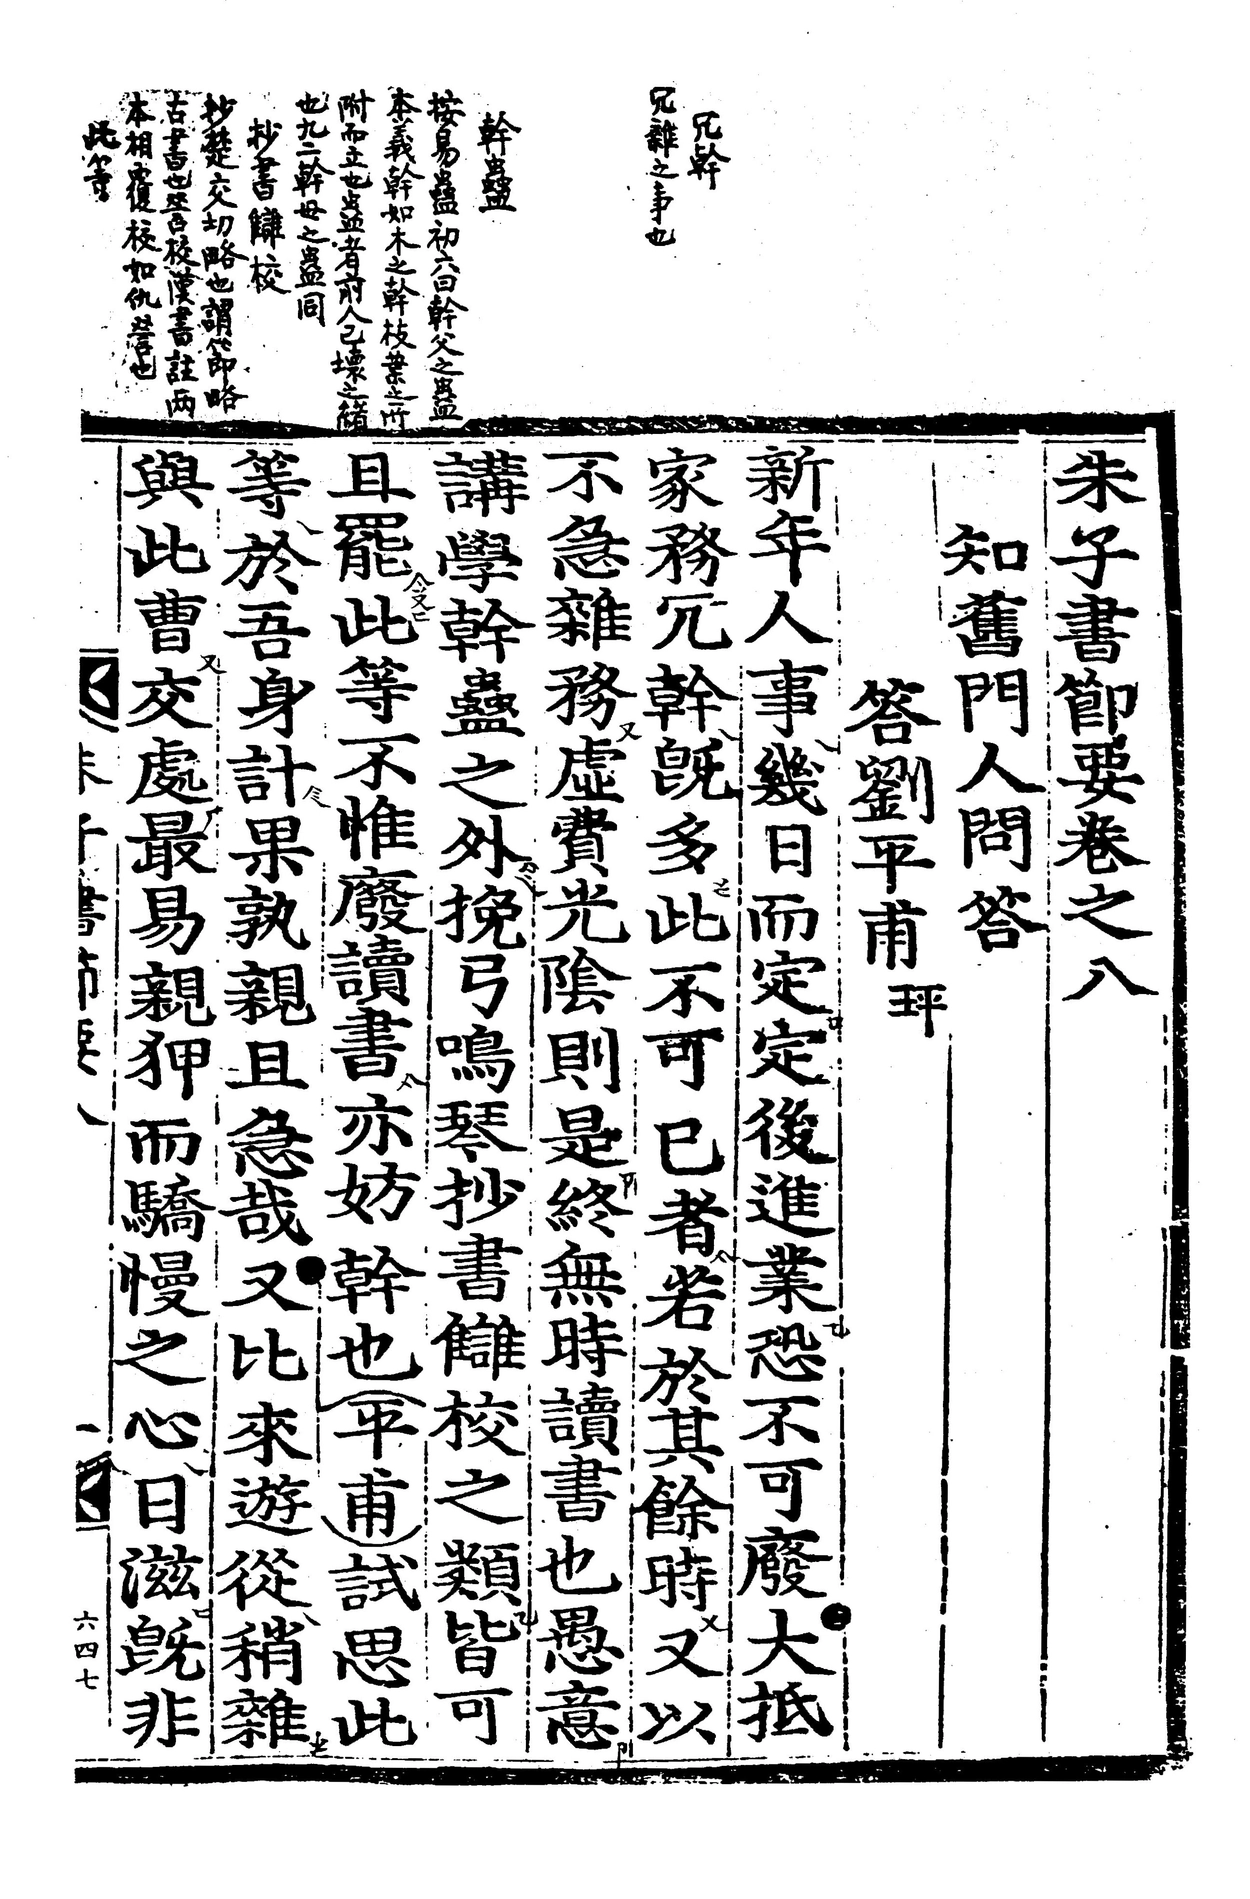 冗幹
冗雜之事也
幹蠱
按易蠱初六曰幹父之蠱
本義幹如木之幹枝葉之所
附而立也蠱者前人已壞之緒
也九二幹母之蠱同
抄書讎校
抄楚交切略也謂節略
古書也 校漢書註兩
本相覆校如仇讐也
此等
朱子書節要卷之八
知舊門人問答
答劉平甫 玶
新年人事幾日而定定後進業恐不可廢大抵
家務冗幹既多此不可已者若於其餘時又以
不急雜務虛費光陰則是終無時讀書也愚意
講學幹蠱之外挽弓鳴琴抄書讎校之類皆可
且罷此等不惟廢讀書亦妨幹也平甫試思此
等於吾身計果孰親且急哉又比來遊從稍雜
與此曹交處最易親狎而驕慢之心日滋既非
朱子書節要八
一
六四七